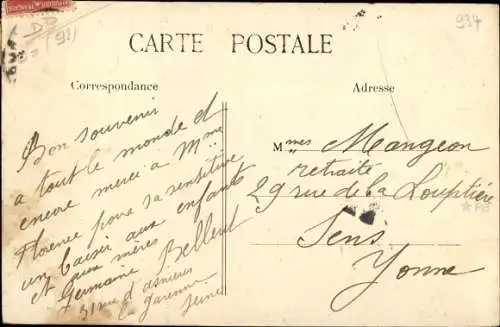 931
934
CARTE POSTALE
Correspondance
Adresse
Bon souvenir
a tout le monde et
encore merci a Mme
Florence pour sa sensitive
un baiser aux enfants
et aux mères
Germaine Belleut
31 rue d'asnieres
la garenne
Seine
Mmes Mangeon
retraité
29 rue de la Louptière
Sens
Yonne